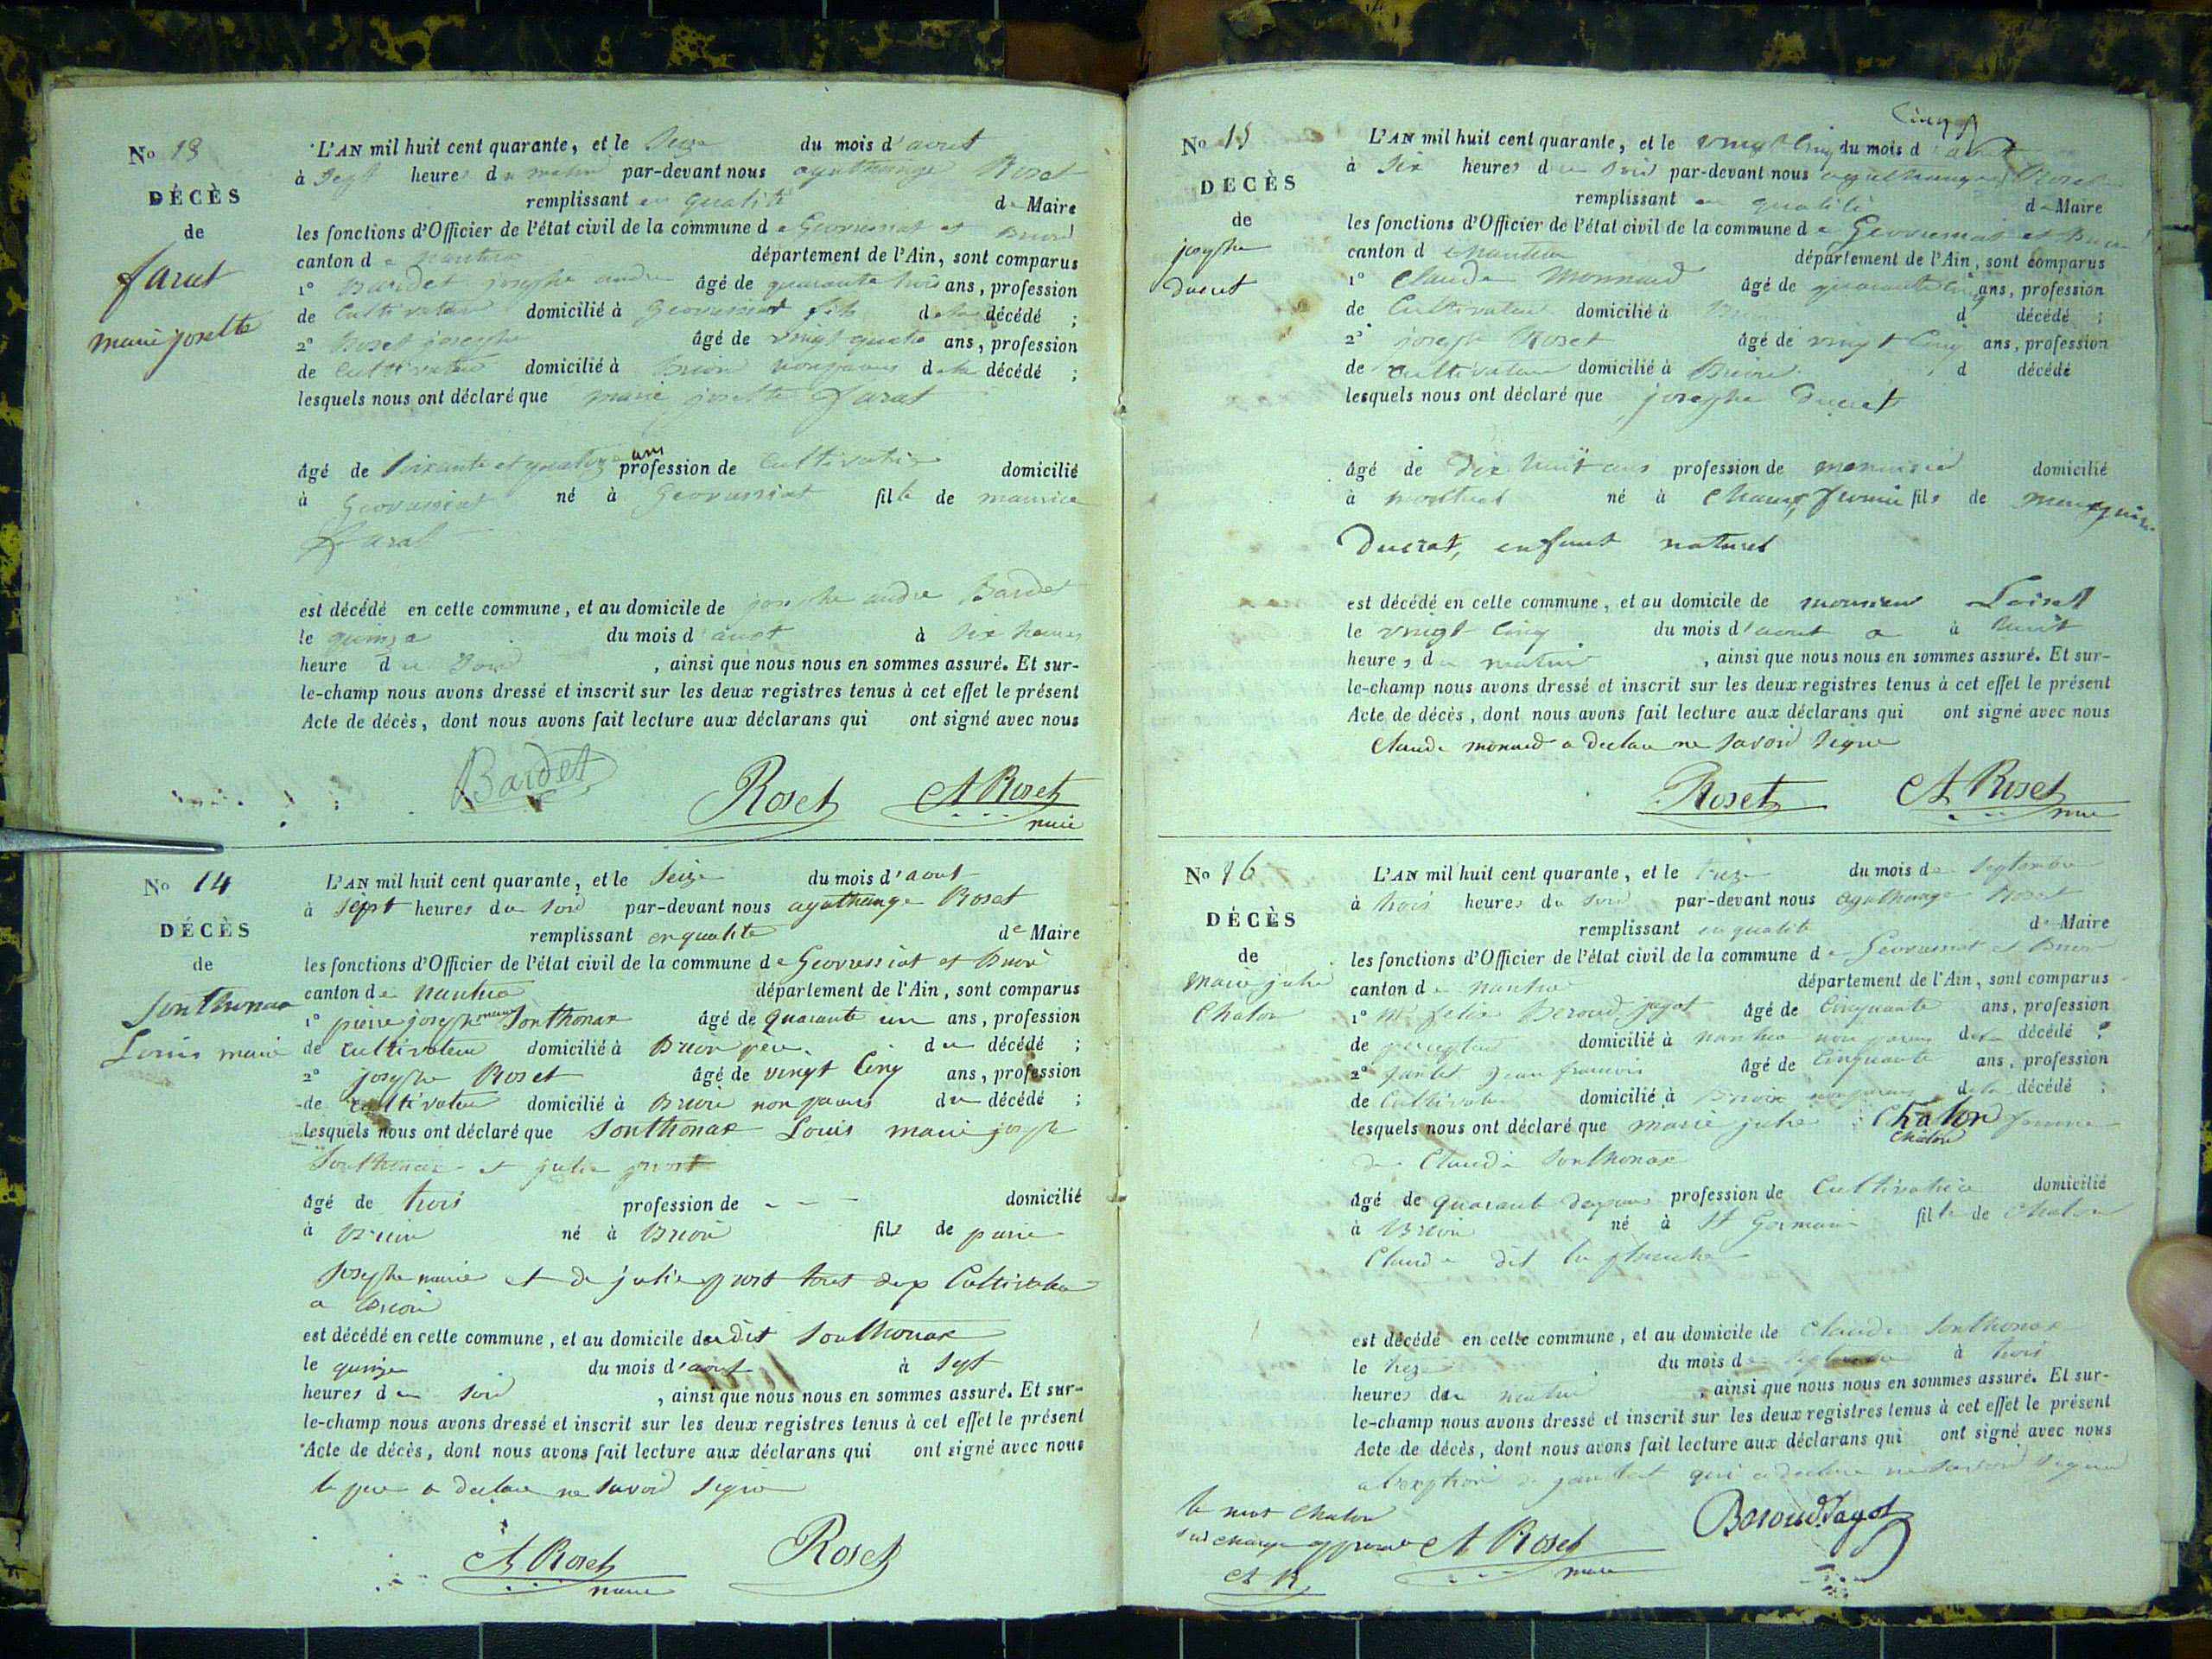 No 13
DÉCÈS
de
farat
marie josette
L'AN mil huit cent quarante, et le Seize du mois d'aout
à Sept heures du matin par-devant nous agathange Roset
remplissant en qualité de Maire
les fonctions d'Officier de l'état civil de la commune de Geovressiat et Brion
canton de nantua département de l'Ain, sont comparus
1° Bardet josephe andre âgé de quarante trois ans, profession
de Cultivateur domicilié à Geovressiat fils de la décédé ;
2° Roset josephe âgé de vingt quatre ans, profession
de Cultivateur domicilié à Brion non parens de la décédé ;
lesquels nous ont déclaré que marie josette farat
âgé de soixante et quatorze ans profession de Cultivatrice domicilié
à Geovressiat né à Geovressiat fille de maurice
farat
est décédé en cette commune, et au domicile de josephe andre Bardet
le quinze du mois d'aout à six heures
heure du Soir , ainsi que nous nous en sommes assuré. Et sur-
le-champ nous avons dressé et inscrit sur les deux registres tenus à cet effet le présent
Acte de décès, dont nous avons fait lecture aux déclarans qui ont signé avec nous
Bardet Roset A Roset
maire
No 14
DÉCÈS
de
Sonthonax
Louis marie
L'AN mil huit cent quarante, et le Seize du mois d'aout
à Sept heures du soir par-devant nous agathange Roset
remplissant en qualite de Maire
les fonctions d'Officier de l'état civil de la commune de Geovressiat et Brion
canton de nantua département de l'Ain, sont comparus
1° pierre joseph marie Sonthonax âgé de quarante un ans, profession
de cultivateur domicilié à Brion pere du décédé ;
2° josephe Roset âgé de vingt cinq ans, profession
de cultivateur domicilié à Brion non parens du décédé ;
lesquels nous ont déclaré que Sonthonax Louis marie joseph
Sonthonax et julie
âgé de trois profession de - - - domicilié
à Brion né à Brion fils de pierre
Josephe marie et de julie tous deux Cultivateur
a Brion
est décédé en cette commune, et au domicile du dit Sonthonax
le quinze du mois d'aout à Sept
heures du soir , ainsi que nous nous en sommes assuré. Et sur-
le-champ nous avons dressé et inscrit sur les deux registres tenus à cet effet le présent
Acte de décès, dont nous avons fait lecture aux déclarans qui ont signé avec nous
le pere a declare ne savoir signe
A Roset Roset
maire
No 15
DÉCÈS
de
josephe
ducret
Cinq
L'AN mil huit cent quarante, et le vingt cinq du mois d'aout
à six heures du soir par-devant nous agathange Roset
remplissant en qualité de Maire
les fonctions d'Officier de l'état civil de la commune de Geovressiat et Brion
canton de nantua département de l'Ain, sont comparus
1° Claude Monnard âgé de quarante cinq ans, profession
de Cultivateur domicilié à Brion d décédé ;
2° joseph Roset âgé de vingt cinq ans, profession
de cultivateur domicilié à Brion d décédé
lesquels nous ont déclaré que josephe Ducret
âgé de dix huit ans profession de menuisier domicilié
à montreal né à Champfromier fils de
Ducrat, enfant naturel
est décédé en cette commune, et au domicile de monsieur Loisel
le vingt cinq du mois d'aout a à huit
heures du matin , ainsi que nous nous en sommes assuré. Et sur-
le-champ nous avons dressé et inscrit sur les deux registres tenus à cet effet le présent
Acte de décès, dont nous avons fait lecture aux déclarans qui ont signé avec nous
Claude monard a declare ne savoir signe
Roset A Roset
maire
No 16
DÉCÈS
de
Marie julie
Chaton
L'AN mil huit cent quarante, et le treze du mois de Septembre
à trois heures du soir par-devant nous agathange Roset
remplissant en qualité de Maire
les fonctions d'Officier de l'état civil de la commune de Geovressiat et Brion
canton de nantua département de l'Ain, sont comparus
1° Mr felix Beroud jagot âgé de Cinquante ans, profession
de percepteur domicilié à nantua non parens de la décédé ;
2° Jantet jean francois âgé de Cinquante ans, profession
de Cultivateur domicilié à Brion non parens de la décédé ;
lesquels nous ont déclaré que marie julie Chaton femme
chaton
de Claude Sonthonax
âgé de quarante deux ans profession de Cultivatrice domicilié
à Brion né à St Germain fille de chaton
Claude dit la
est décédé en cette commune, et au domicile de Claude Sonthonax
le treze du mois de septembre à trois
heures du matin , ainsi que nous nous en sommes assuré. Et sur-
le-champ nous avons dressé et inscrit sur les deux registres tenus à cet effet le présent
Acte de décès, dont nous avons fait lecture aux déclarans qui ont signé avec nous
a lexeption de jantet qui a declare ne savoir signe
le mot chaton
surcharge approuve A Roset Beroud Jagot
A R maire